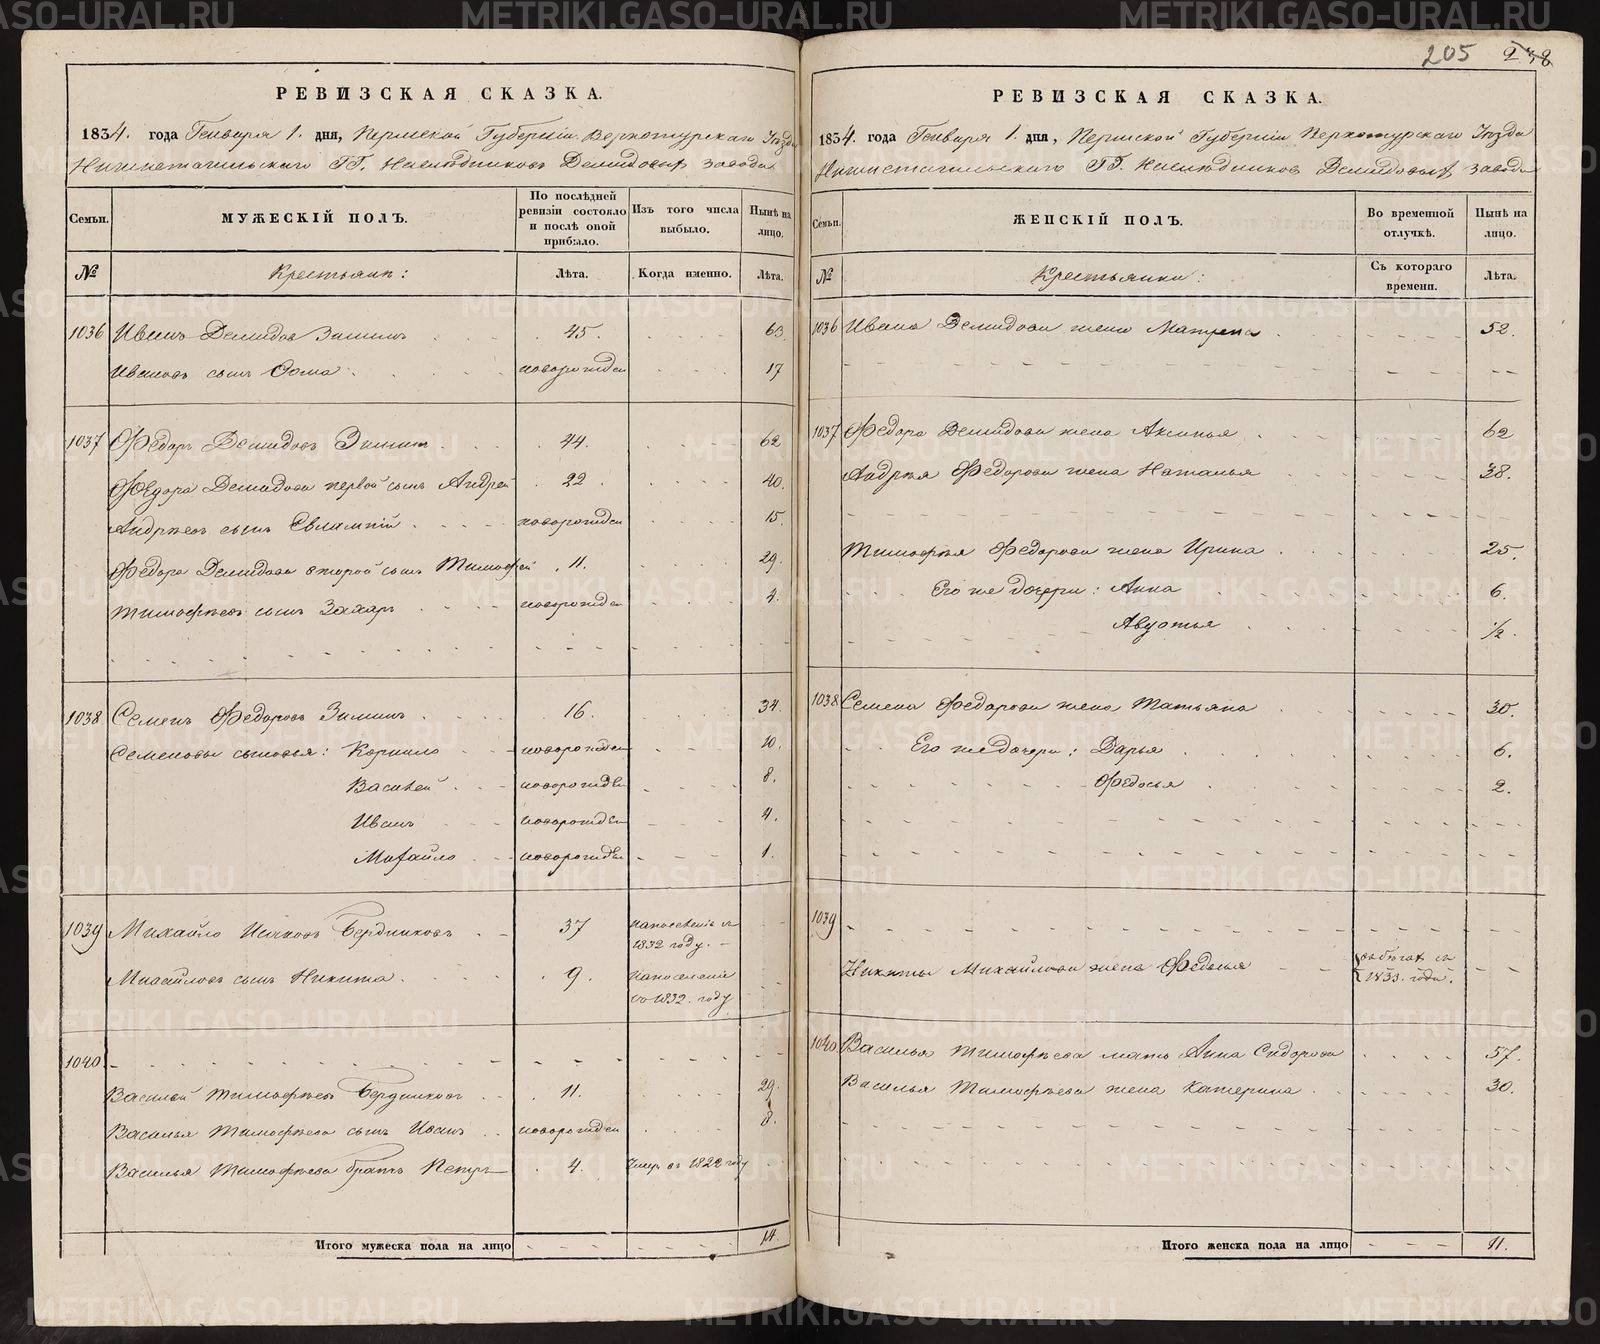 205 238
РЕВИЗСКАЯ СКАЗКА.
1834. года Генваря 1. дня, Пермской Губернiи Верхотурскаго Уѣзда
Нижнетагильскаго ГГ. Наслѣдниковъ Демидовыхъ завода
Семьи.
МУЖЕСКIЙ ПОЛЪ.
По послѣдней ревизiи состояло и послѣ оной прибыло.
Изъ того числа выбыло.
Нынѣ на лицо.
№
Крестьянъ:
Лѣта.
Когда именно.
Лѣта.
1036 Иванъ Демидовъ Зиминъ 45. 63.
Ивановъ сынъ Фома новорожден 17
1037 Федоръ Демидовъ Зиминъ 44. 62
Федора Демидова первой сынъ Андрей 22. 40.
Андрѣевъ сынъ Евлампiй новорожден 15.
Федора Демидова второй сынъ Тимофей 11. 29.
Тимофѣевъ сынъ Захаръ новорожден 4.
1038 Семенъ Федоровъ Зиминъ 16. 34.
Семеновы сыновья: Корнило новорожден 10.
Василей новорожден 8.
Иванъ новорожден 4.
Михайло новорожден 1.
1039 Михайло Исаковъ Бердниковъ 37 1832 году.
Михайловъ сынъ Никита 9. 1832. году
1040.
Василей Тимофѣевъ Бердниковъ 11. 29.
Василья Тимофѣева сынъ Иванъ новорожден 8.
Василья Тимофѣева братъ Петръ 4. Умер въ 1822 году
Итого мужеска пола на лицо 14.
РЕВИЗСКАЯ СКАЗКА.
1834. года Генваря 1. дня, Пермской Губернiи Верхотурскаго Уѣзда
Нижнетагильскаго ГГ. Наслѣдниковъ Демидовыхъ завода
Семьи.
ЖЕНСКIЙ ПОЛЪ.
Во временной отлучкѣ.
Нынѣ на лицо.
№
Крестьянки:
Съ котораго времени.
Лѣта.
1036 Ивана Демидова жена Матрена 52.
1037 Федора Демидова жена Аксинья 62
Андрѣя Федорова жена Наталья 38.
Тимофѣя Федорова жена Ирина 25.
Его же дочери: Анна 6.
Авдотья 1/2.
1038 Семена Федорова жена Татьяна 30.
Его же дочери: Дарья 6.
Федосья 2.
1039
Никиты Михайлова жена Федосья въ бѣгах съ 1833. года.
1040 Василья Тимофѣева мать Анна Сидорова 57.
Василья Тимофѣева жена Катерина 30.
Итого женска пола на лицо 11.
METRIKI.GASO-URAL.RU